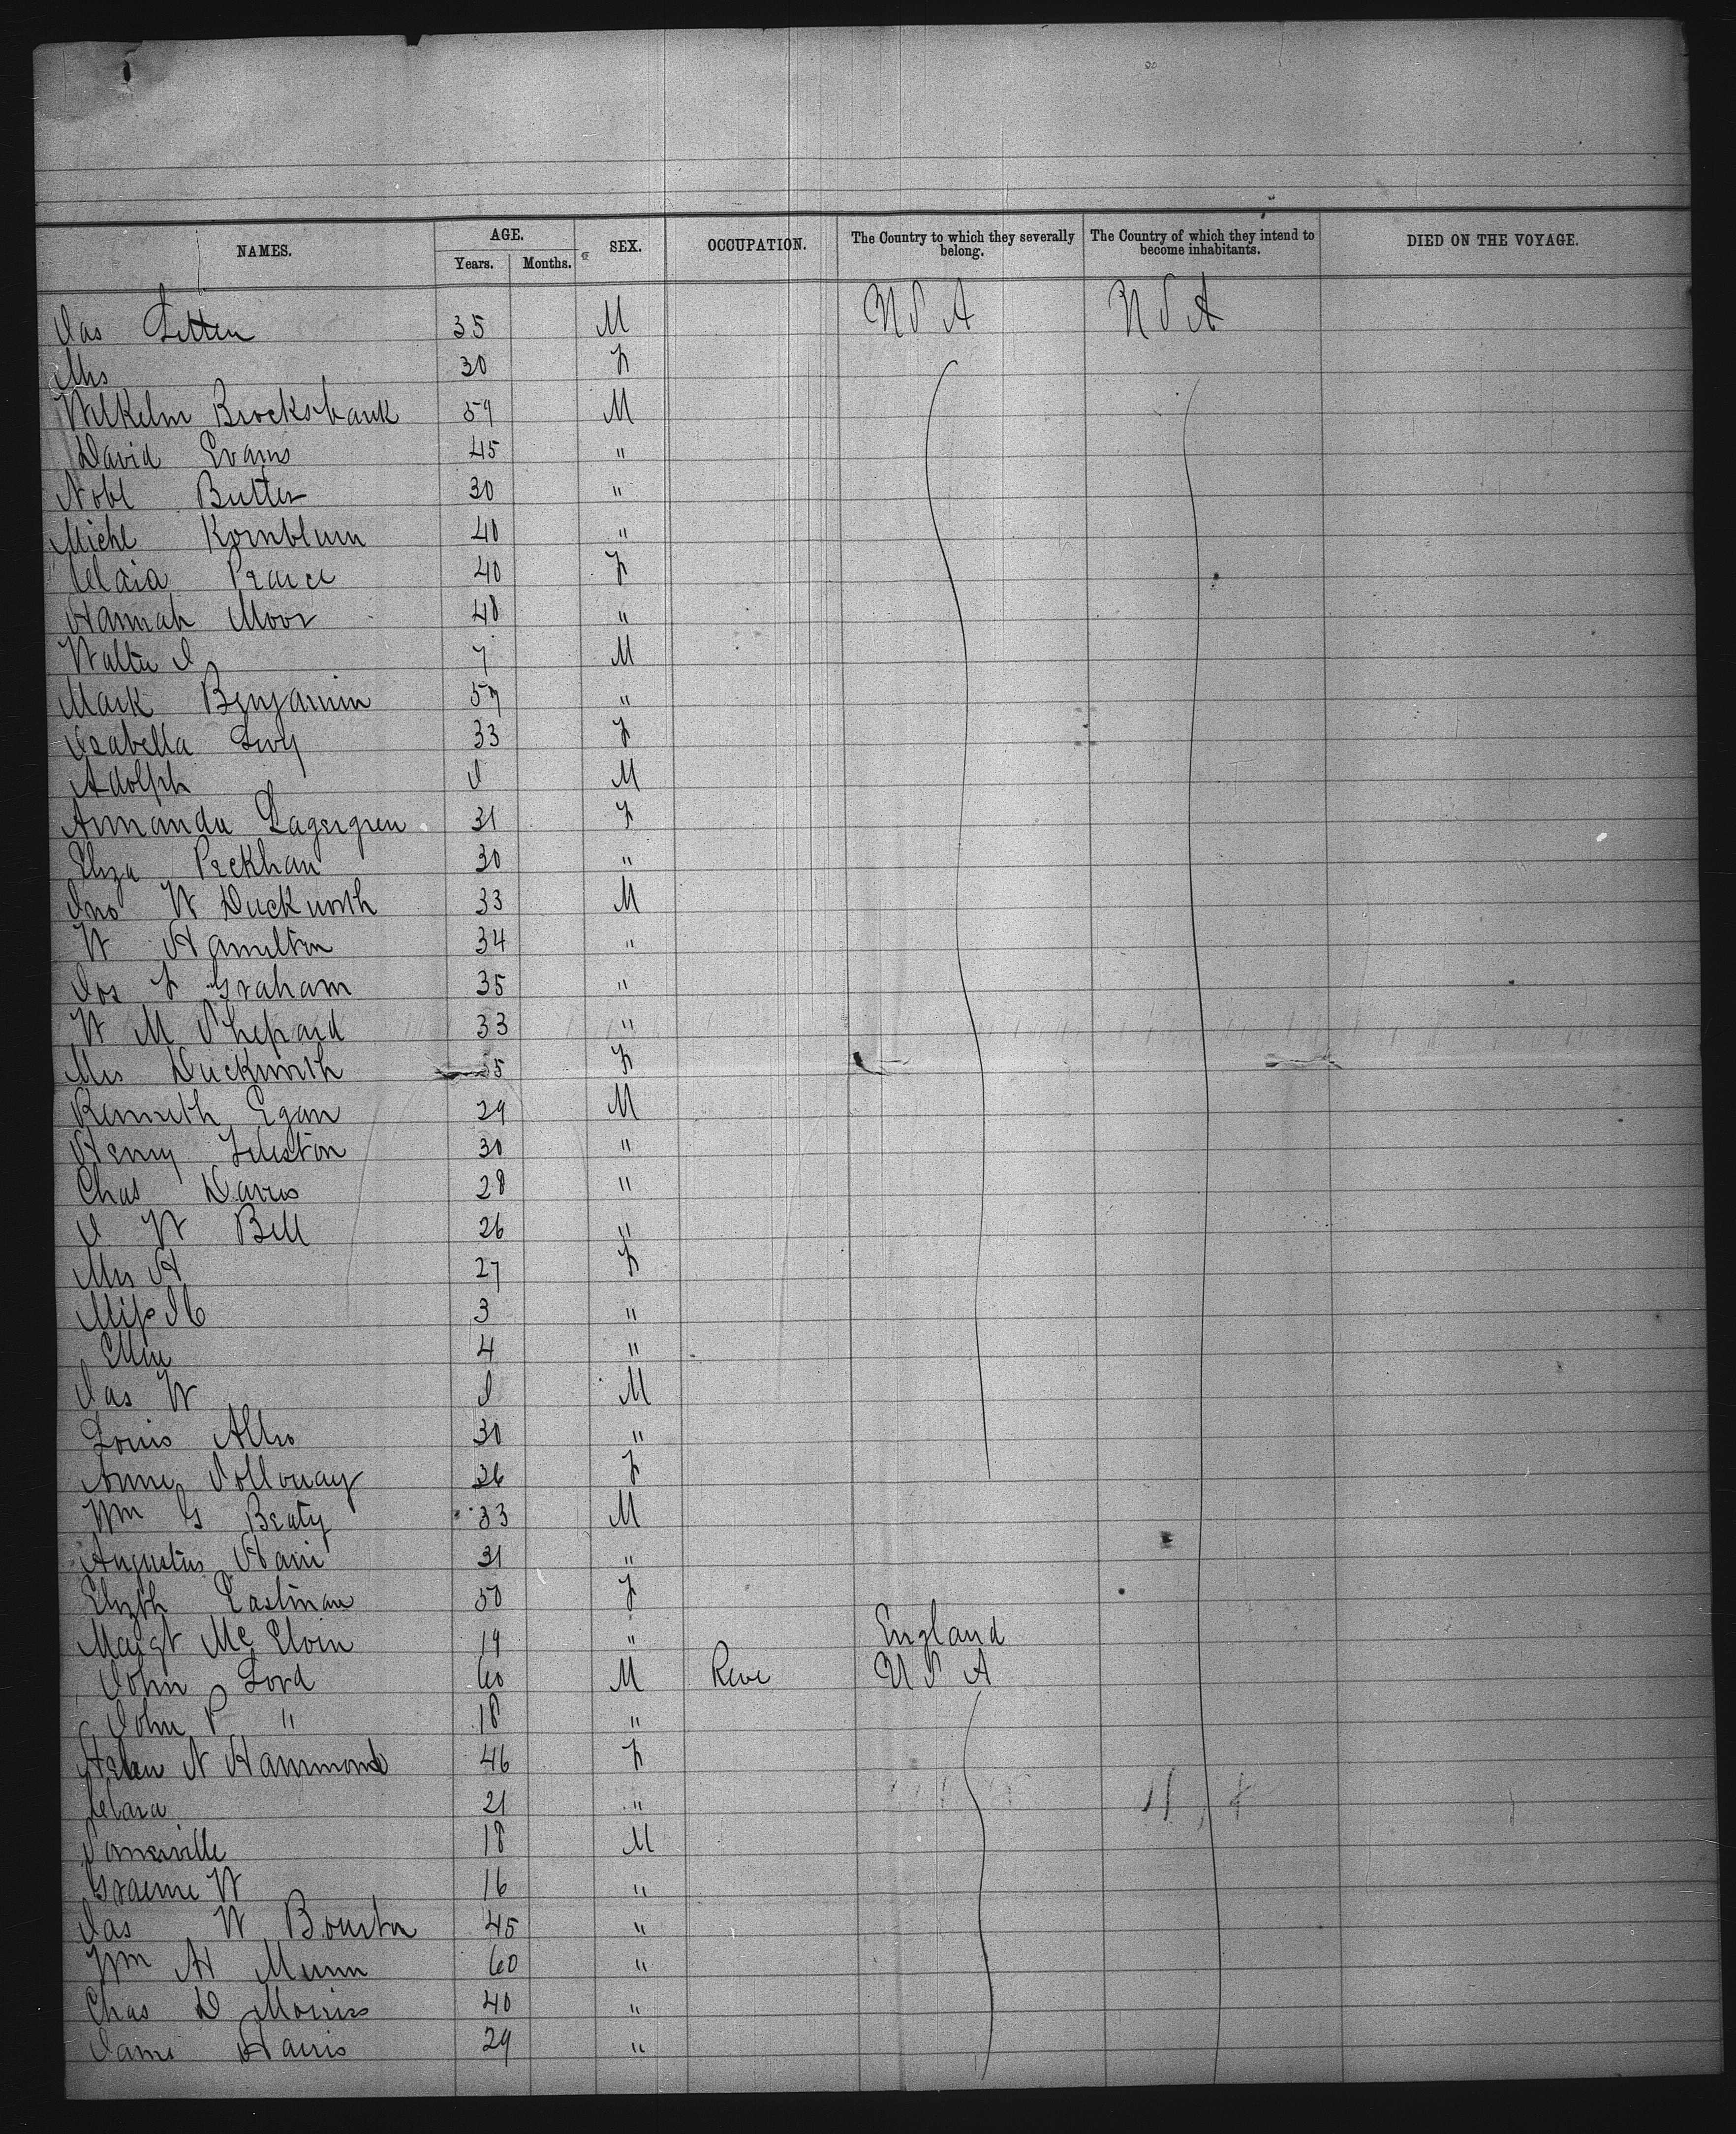 NAMES. AGE. SEX. OCCUPATION. The Country to which they severally belong. The Country of which they intend to become inhabitants. DIED ON THE VOYAGE.
Years. Months.
Jas 35 M U S A U S A
Mrs 30 F
Wilhelm Brocksbank 59 M
David Evans 45 "
Nobl Butler 30 "
Michl Kornblum 40 "
Pearce 40 F
Hannah Moor 48 "
Walter J 7 M
Mark Benjamin 57 "
Isabella Levy 33 F
Adolph M
Amanda Lagergren 31 F
Eliza Peckham 30 "
Jno W Duckworth 33 M
W Hamilton 34 "
Jos F Graham 35 "
W M Shepard 33 "
Mrs Duckworth F
Kenneth Egan 29 M
Henry 30 "
Chas Davies 28 "
J W Bell 26 "
Mrs H 27 F
Miss 3 "
4 "
Jas W M
Louis 30 "
Anne F
Wm G Beaty 33 M
Augustus 31 "
Elizth Eastman 50 F
Margt Mc Elvin 19 " England
John Lord 60 M Reve U S A
John P " 18 "
Helen N Hammond 46 F
Clara 21 "
Somerville 18 M
Graeme W 16 "
Jas W 45 "
Wm H Munn 60 "
Chas D Morris 40 "
James Harris 29 "